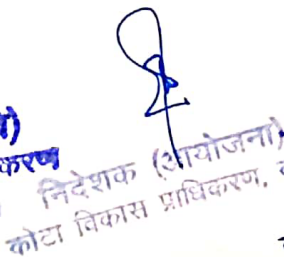 करण
निदेशक (आयोजना)
कोटा विकास प्राधिकरण,